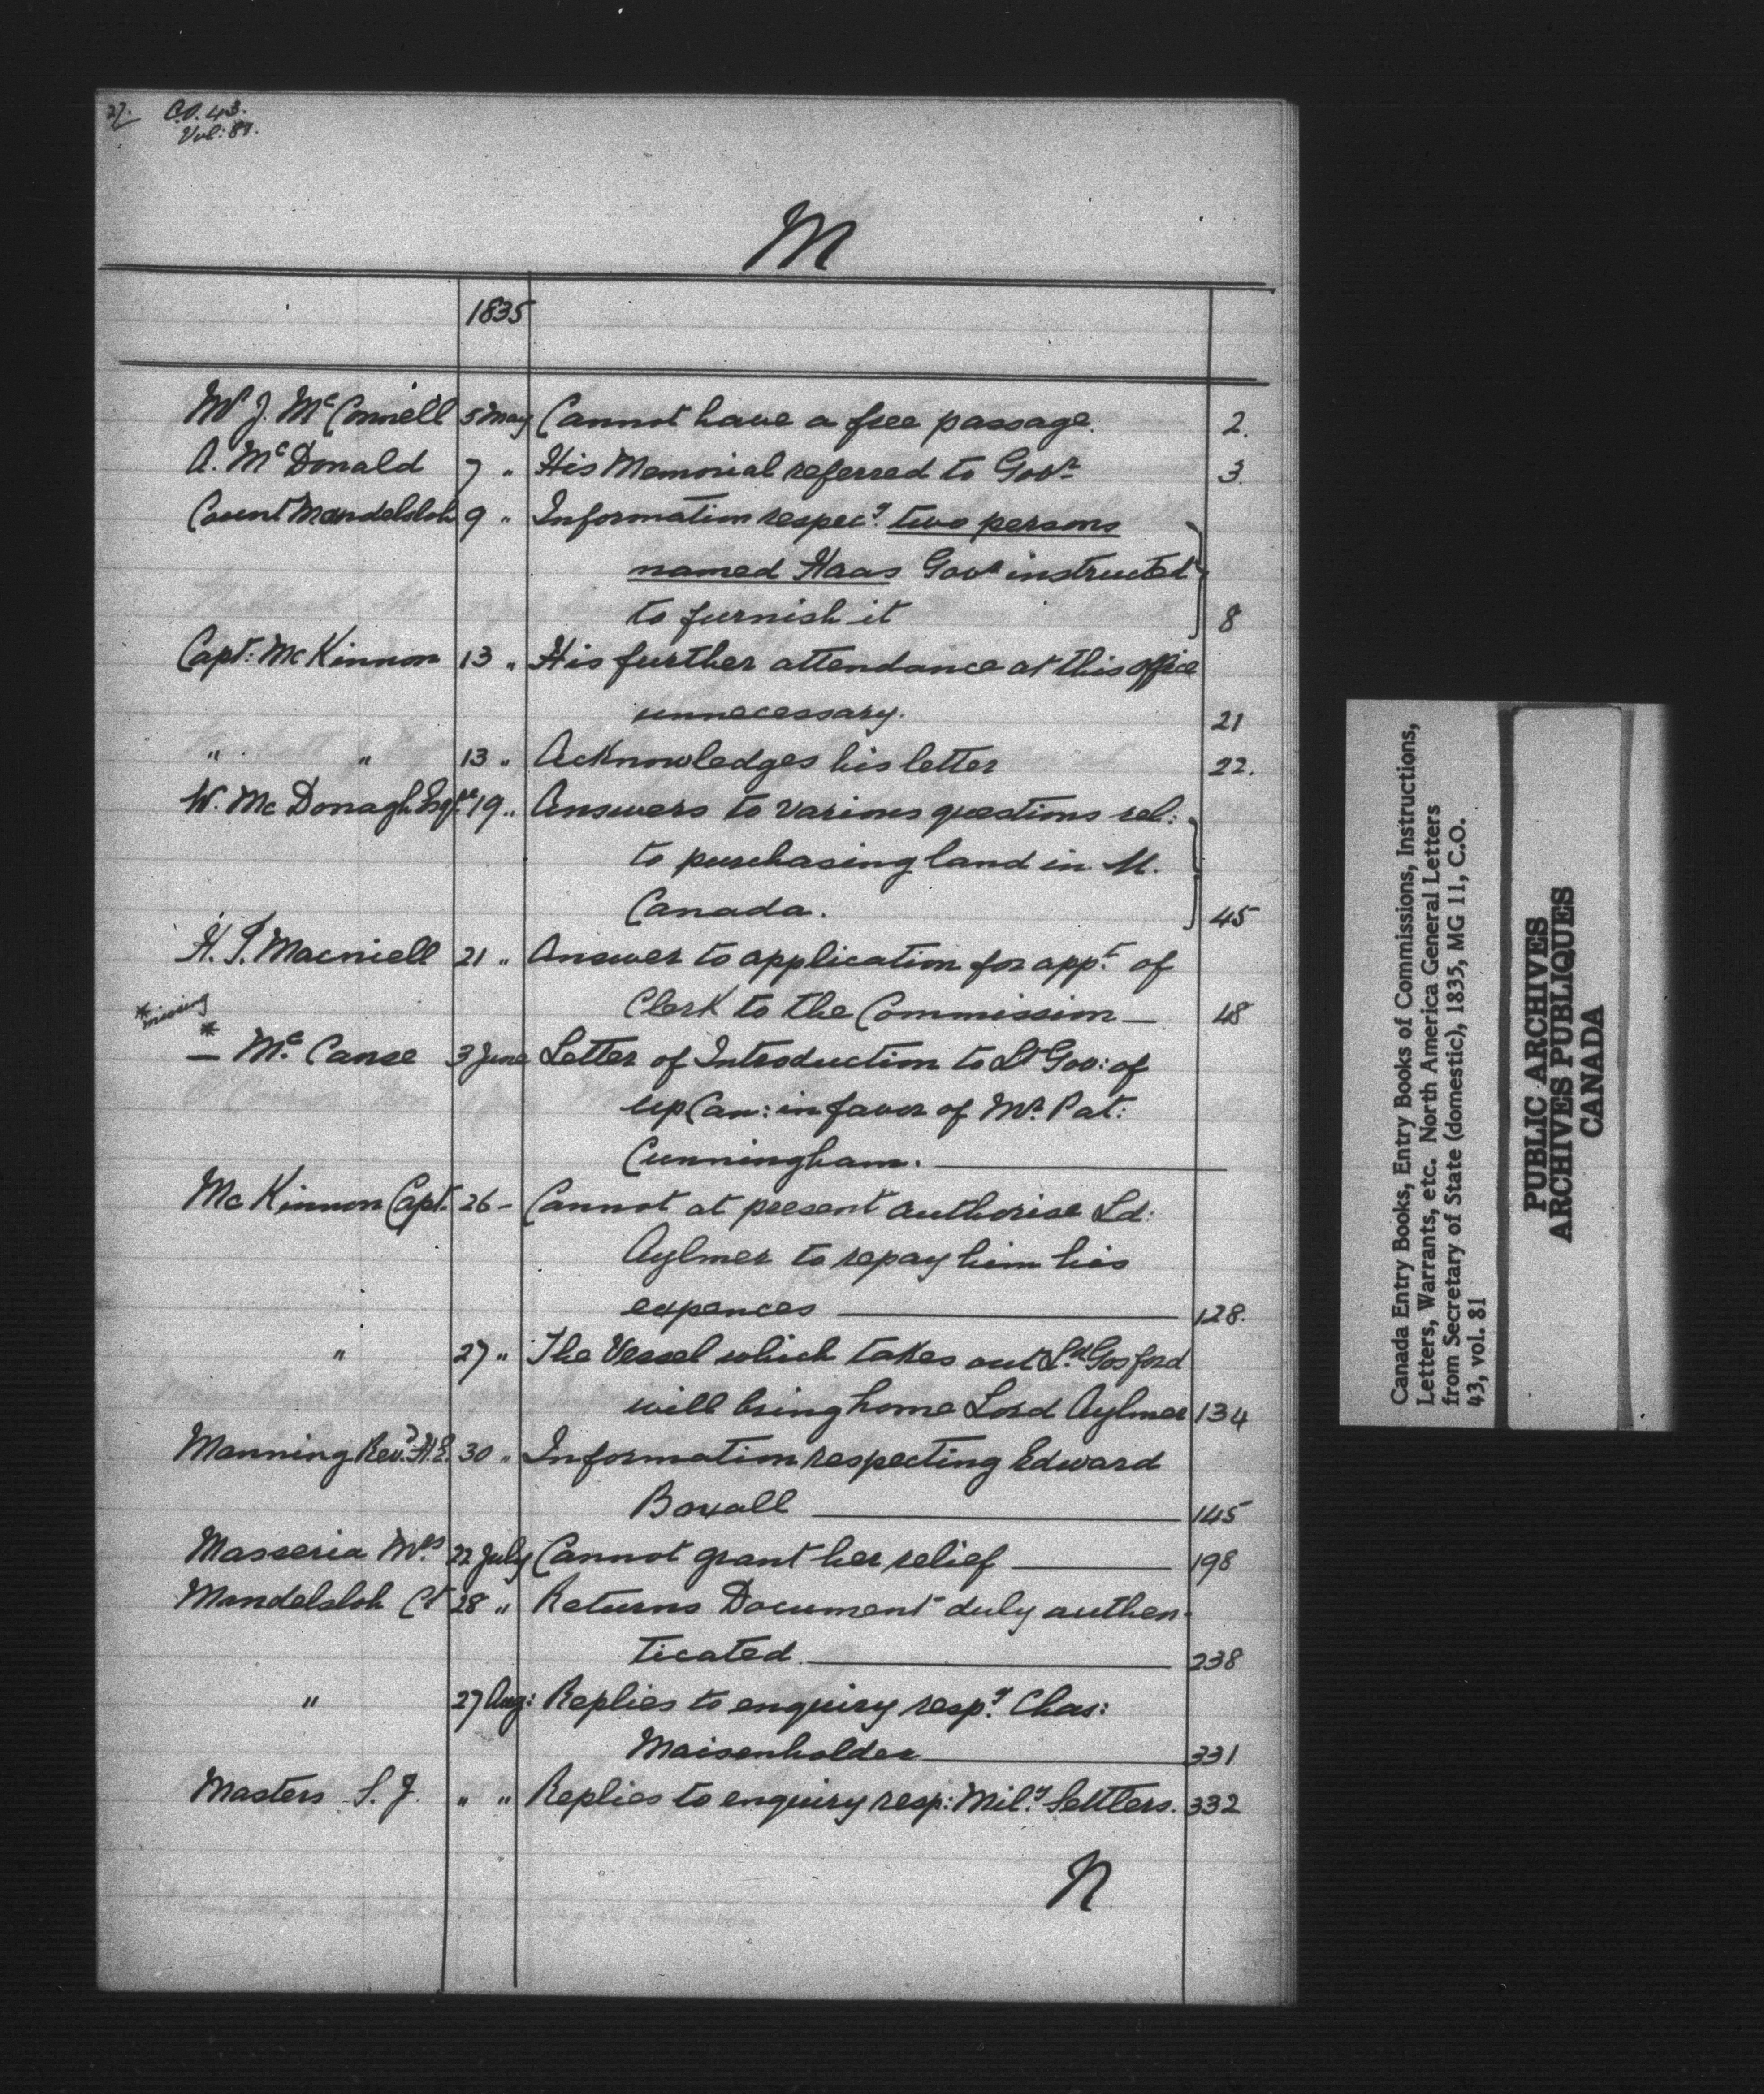 27. C.O. 43.
Vol: 81.
M
1835
W J. McConnell 5 May Cannot have a free passage. 2.
A. McDonald 7 " His Memorial referred to Govr 3.
Count Mandelsloh 9 " Information respecg two persons
named Haas Govr instructed
to furnish it 8
Capt: McKinnon 13 " His further attendance at this office
unnecessary. 21
" " 13 " Acknowledges his letter 22.
W. McDonagh Esqre 19 " Answers to various questions rel:
to purchasing land in U.
Canada. 45
H. J. Macniell 21 " Answer to application for appt of
Clerk to the Commission — 48
* missing
* — Mc Canse 3 June Letter of Introduction to Lt Gov: of
Up Can: in favor of Mr Pat:
Cunningham. —
McKinnon Capt. 26 - Cannot at present authorise Ld:
Aylmer to repay him his
expences — 128.
" 27 " The Vessel which takes out Ld Gosford
will bring home Lord Aylmer 134
Manning Revd H.E. 30 " Information respecting Edward
Boxall — 145
Masseria Mrs 22 July Cannot grant her relief — 198
Mandelsloh Ct 28 " Returns Document duly authen-
ticated. — 238
" 27 Aug: Replies to enquiry respg Chas:
Maisenholder — 331
Masters S. J. " " Replies to enquiry resp: Mily Settlers. 332
N
Canada Entry Books, Entry Books of Commissions, Instructions,
Letters, Warrants, etc. North America General Letters
from Secretary of State (domestic), 1835, MG 11, C.O.
43, vol. 81
PUBLIC ARCHIVES
ARCHIVES PUBLIQUES
CANADA